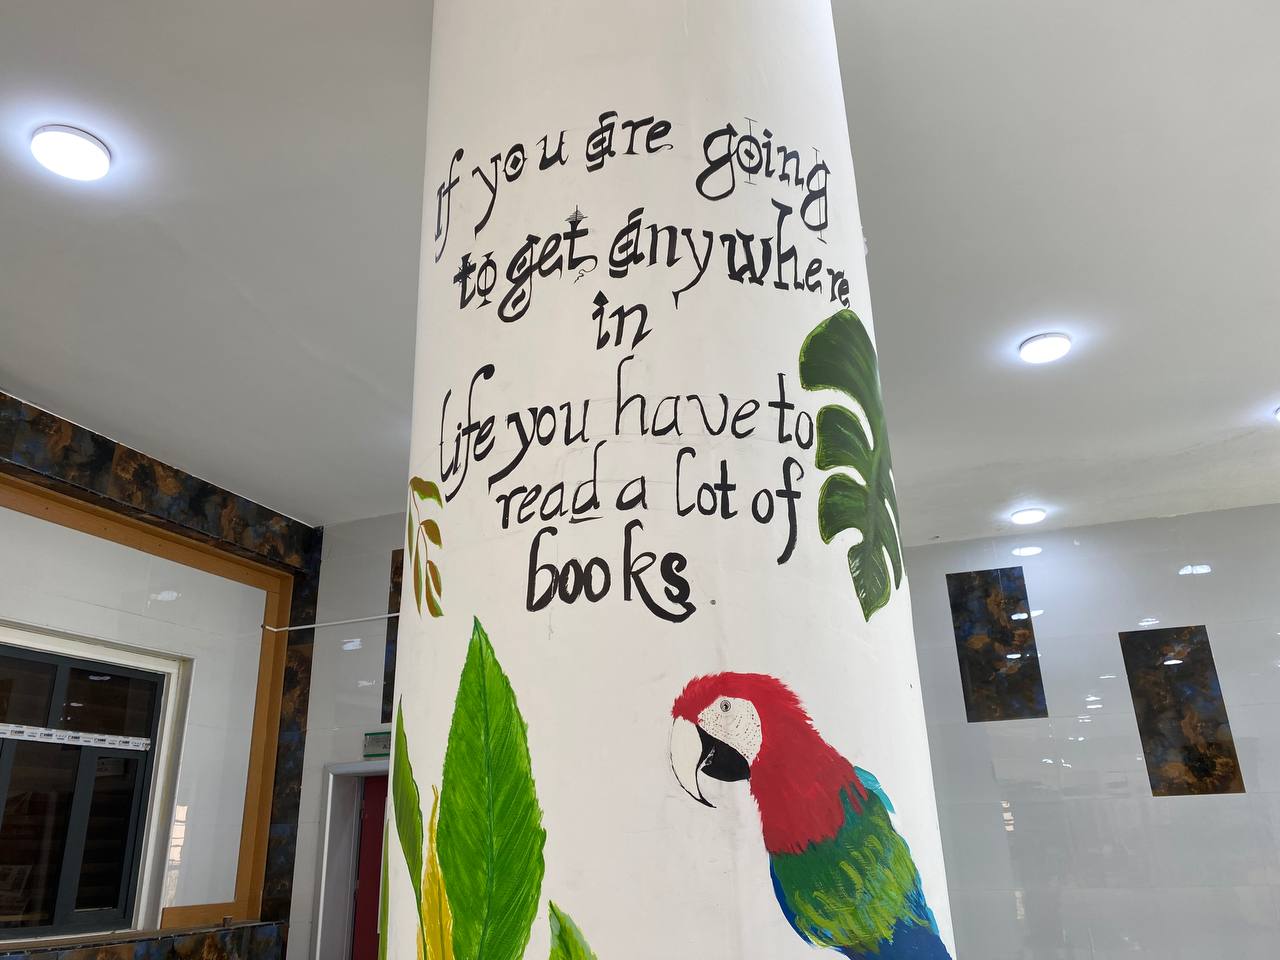 if you are going
to get anywhere
in
life you have to
read a lot of
books.